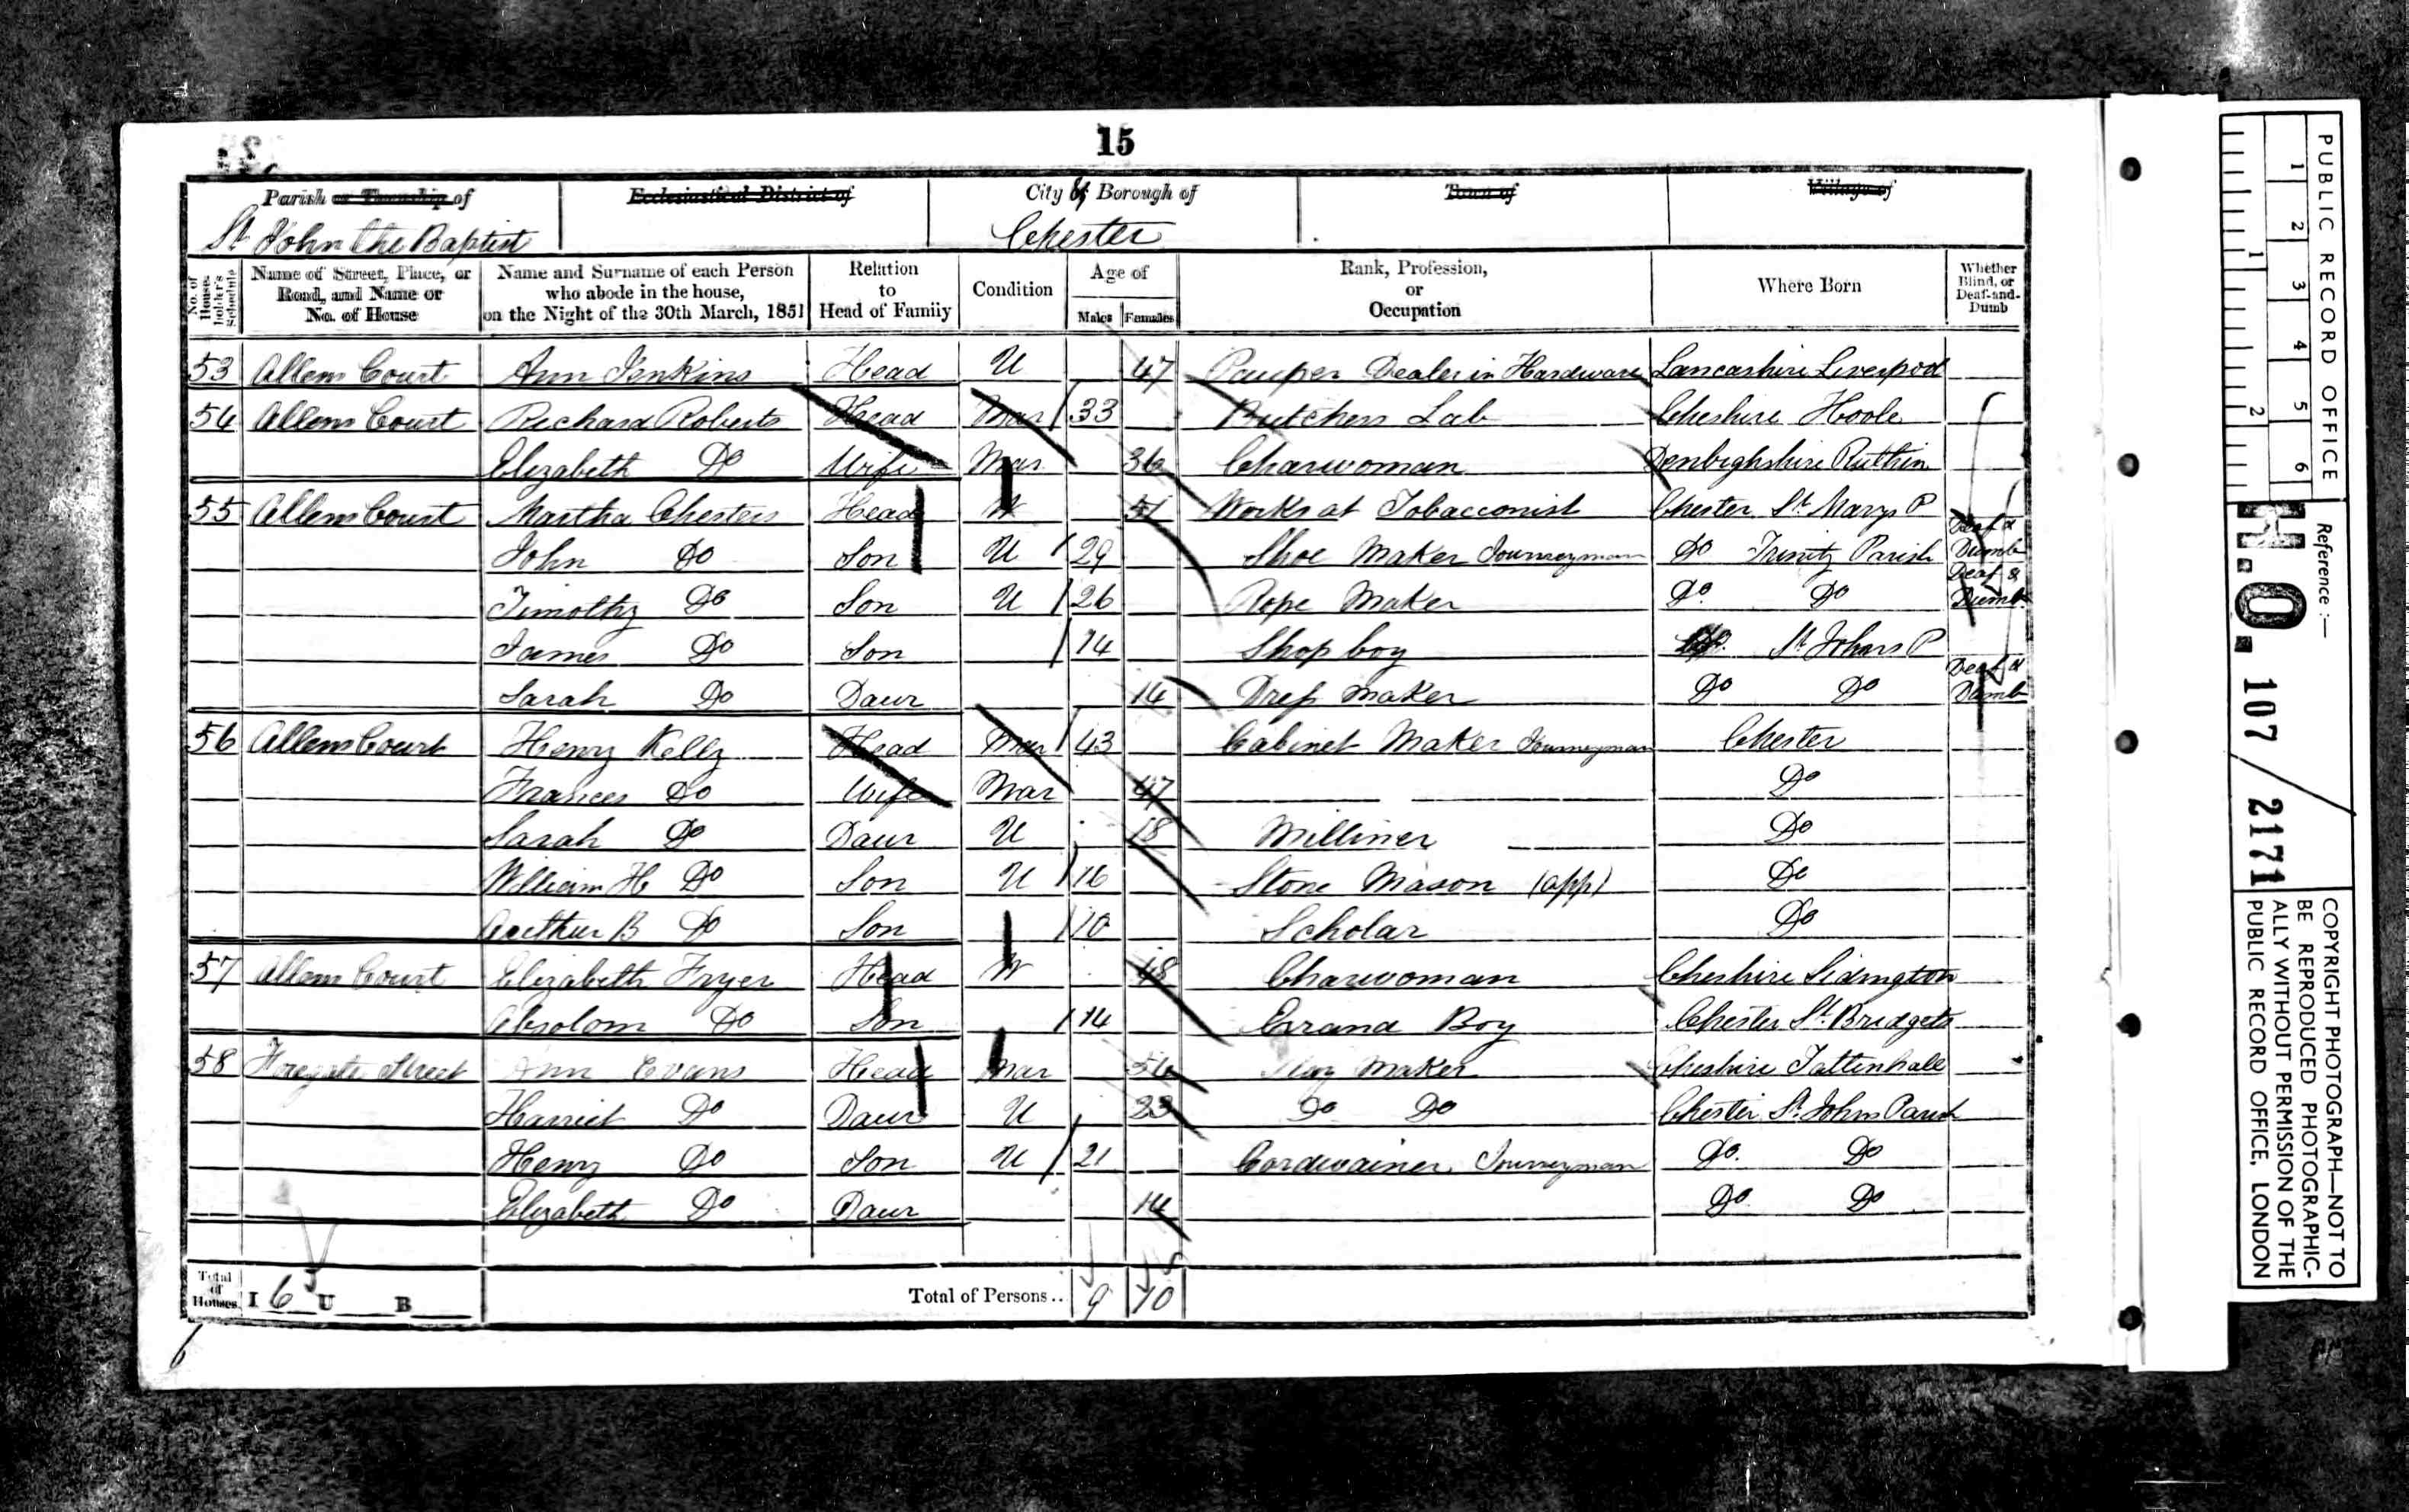 15
Parish or Township of
Ecclesiastical District of
City or Borough of
Town of
Village of
St John the Baptist
Chester
No. of House-holder's Schedule
Name of Street, Place, or Road, and Name or No. of House
Name and Surname of each Person who abode in the house, on the Night of the 30th March, 1851
Relation to Head of Family
Condition
Age of
Males
Females
Rank, Profession, or Occupation
Where Born
Whether Blind, or Deaf-and-Dumb
53 Allens Court Ann Jenkins Head U 47 Pauper Dealer in Hardware Lancashire Liverpool
54 Allens Court Richard Roberts Head Mar 33 Butchers Lab Cheshire Hoole
Elizabeth Do Wife Mar 36 Charwoman Denbighshire Ruthin
55 Allens Court Martha Chesters Head W 51 Works at Tobacconist Chester St Marys P
John Do Son U 29 Shoe Maker Journeyman Do Trinity Parish Deaf & Dumb
Timothy Do Son U 26 Rope Maker Do Do Deaf & Dumb
James Do Son 14 Shop boy Do St Johns P
Sarah Do Daur 14 Dress Maker Do Do Deaf & Dumb
56 Allens Court Henry Kelly Head Mar 43 Cabinet Maker Journeyman Chester
Frances Do Wife Mar 47 Do
Sarah Do Daur U 18 Milliner Do
William H Do Son U 16 Stone Mason (app) Do
Arthur B Do Son 10 Scholar Do
57 Allens Court Elizabeth Fryer Head W 48 Charwoman Cheshire Sidington
Absolom Do Son 14 Errand Boy Chester St Bridgets
58 Foregate Street Ann Evans Head Mar 56 Maker Cheshire Tattenhall
Harriet Do Daur U 23 Do Do Chester St Johns Parish
Henry Do Son U 21 Cordwainer Journeyman Do Do
Elizabeth Do Daur 14 Do Do
Total of Houses I 6 U B Total of Persons.. 9 10
6
PUBLIC RECORD OFFICE
1 2 3 4 5 6
1 2
Reference :-
H.O. 107 / 2171
COPYRIGHT PHOTOGRAPH—NOT TO
BE REPRODUCED PHOTOGRAPHIC-
ALLY WITHOUT PERMISSION OF THE
PUBLIC RECORD OFFICE, LONDON